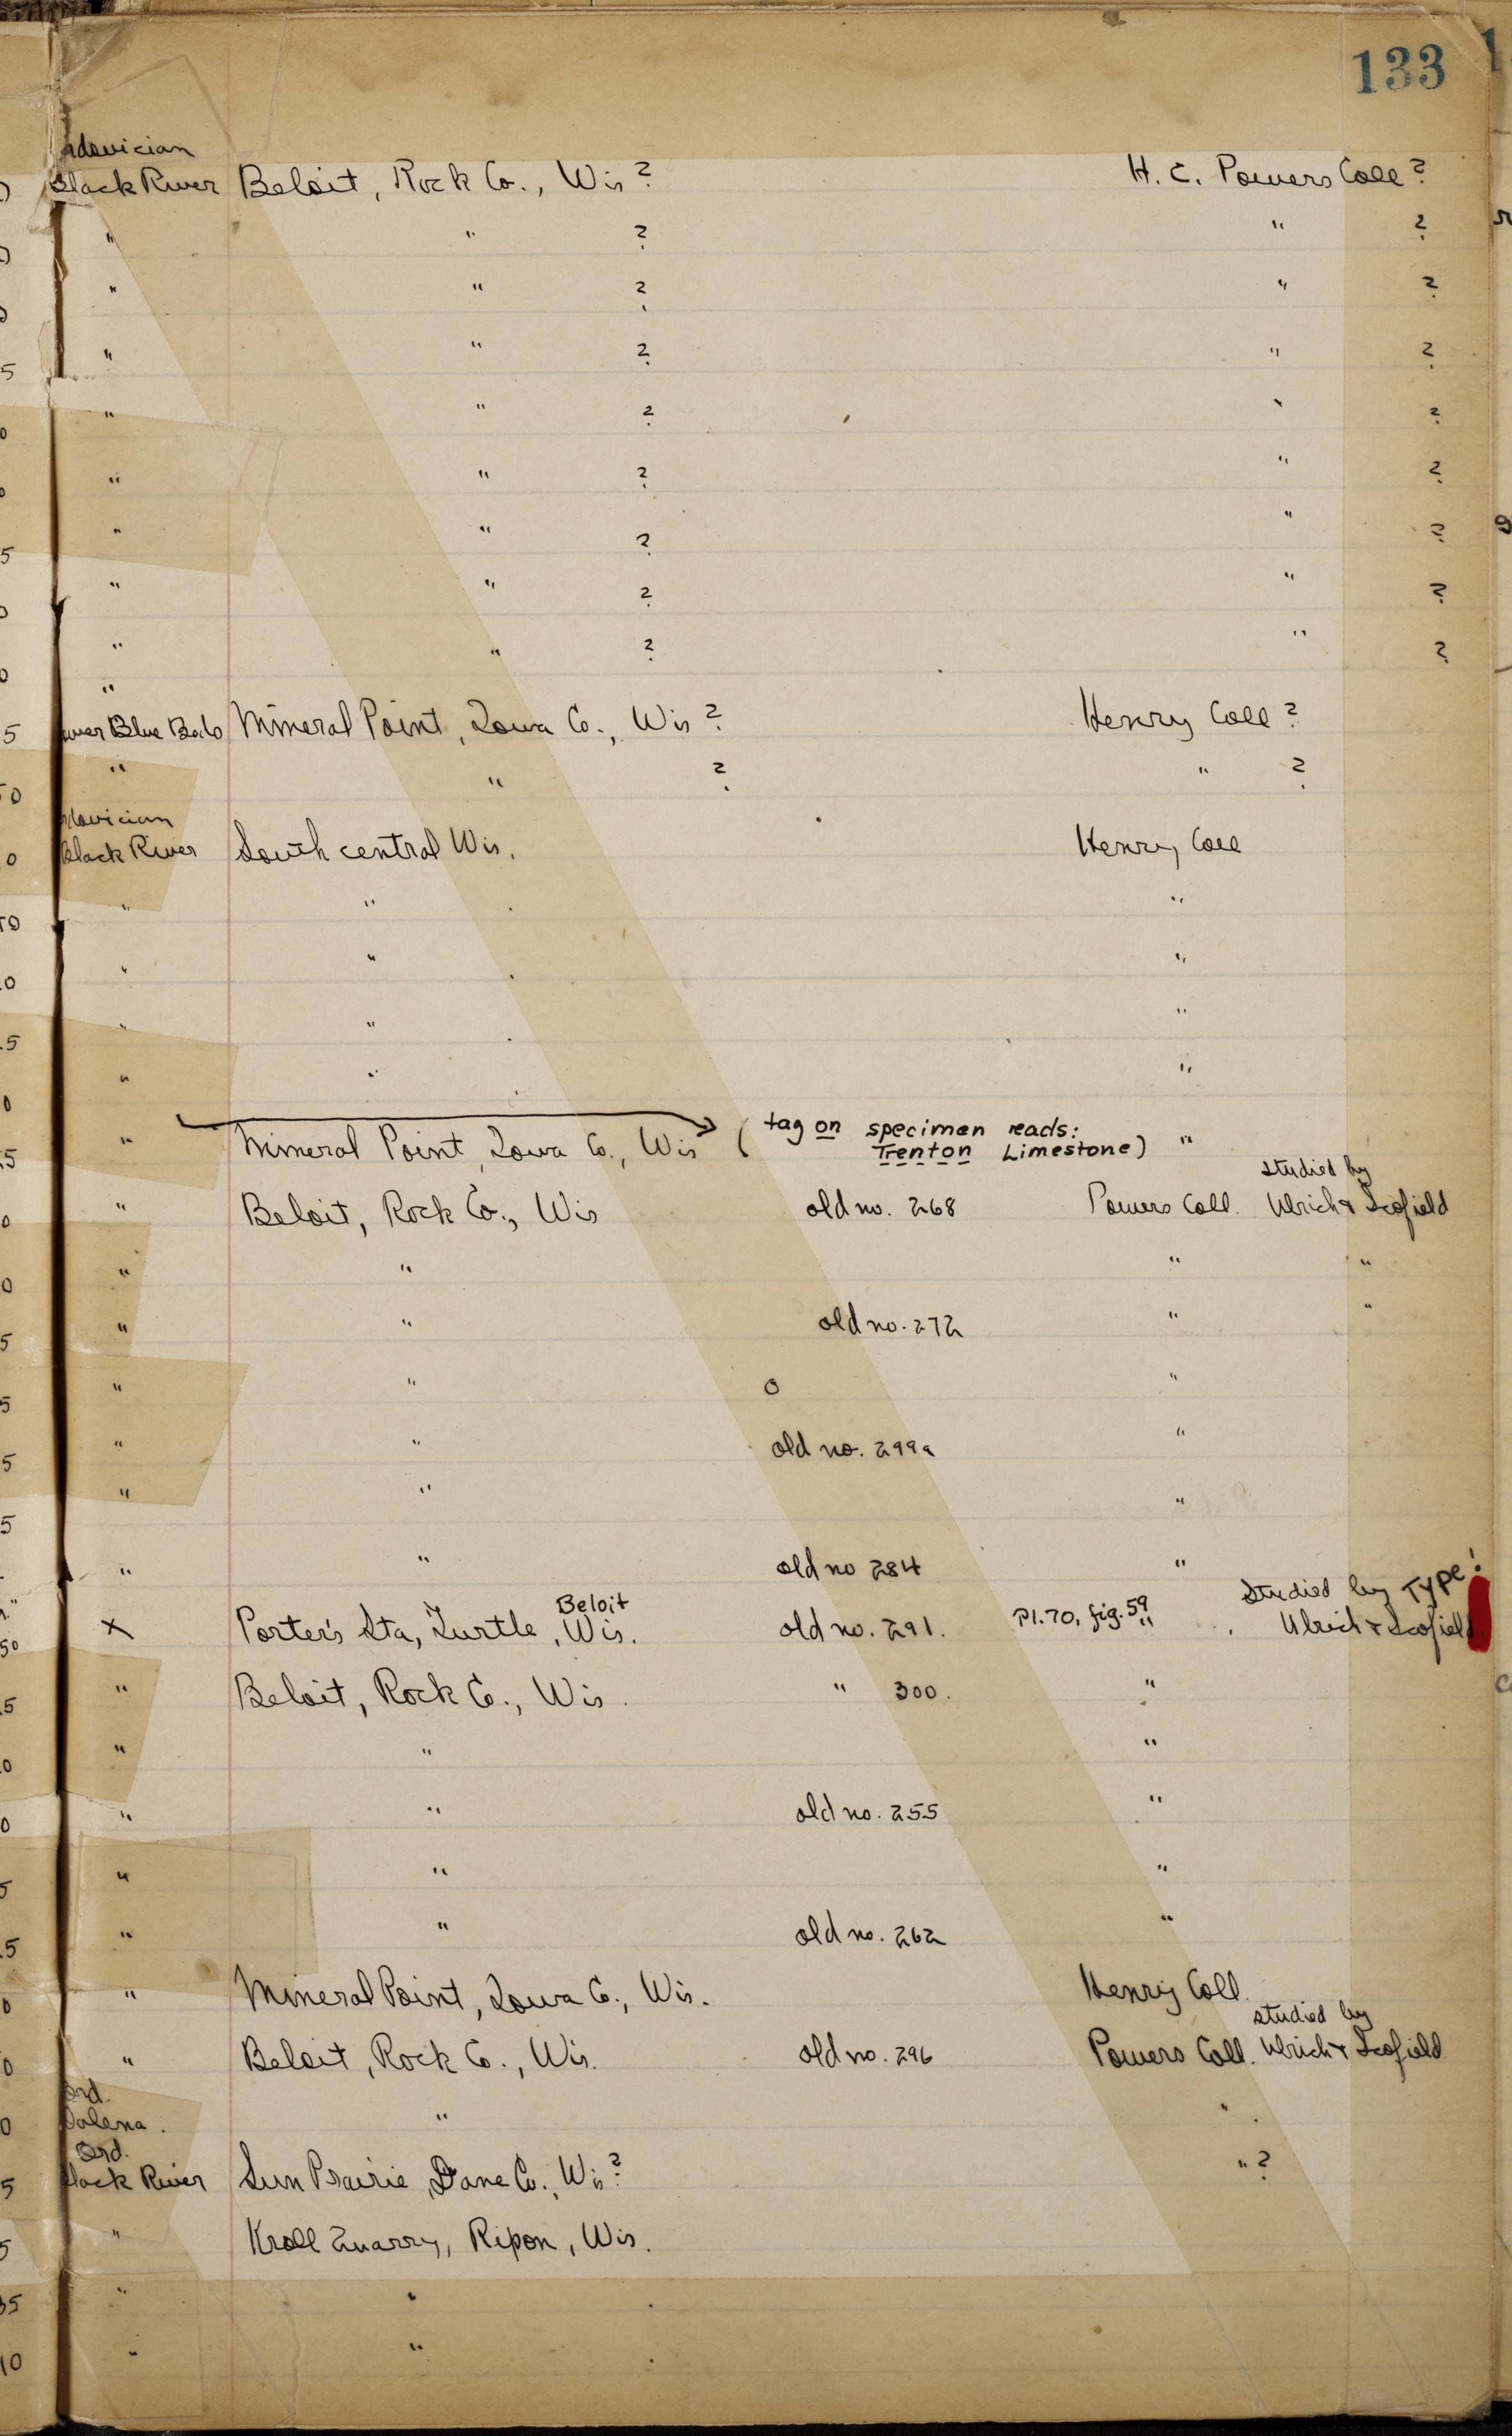 133
Ordovician
Black River Beloit, Rock Co., Wis ? H. C. Powers Coll ?
" " ? " ?
" " ? " ?
" " ? " ?
" " ? " ?
" " ? " ?
" " ? " ?
" " ? " ?
" " ? " ?
"
Blue Beds Mineral Point, Iowa Co., Wis ? Henry Coll ?
" " ? " ?
Black River South central Wis. Henry Coll
" " "
" " "
" " "
" " "
" Mineral Point, Iowa Co., Wis (tag on specimen reads: "
Trenton Limestone)
studied by
" Beloit, Rock Co., Wis old no. 268 Powers Coll. Ulrich & Scofield
" " " "
" " old no. 272 " "
" " o "
" " old no. 299a "
" " "
" " old no 284 "
Beloit studied by Type!
x Porter's Sta, Turtle, Wis. old no. 291. Pl. 70, fig. 59 " Ulrich & Scofield
" Beloit, Rock Co., Wis. " 300. "
" " "
" " old no. 255 "
" " "
" " old no. 262 "
" Mineral Point, Iowa Co., Wis. Henry Coll.
studied by
" Beloit, Rock Co., Wis. old no. 296 Powers Coll. Ulrich & Scofield
Ord.
Galena. " "
Ord.
Black River Sun Prairie, Dane Co., Wis ? " ?
" Kroll Quarry, Ripon, Wis.
" "
" "